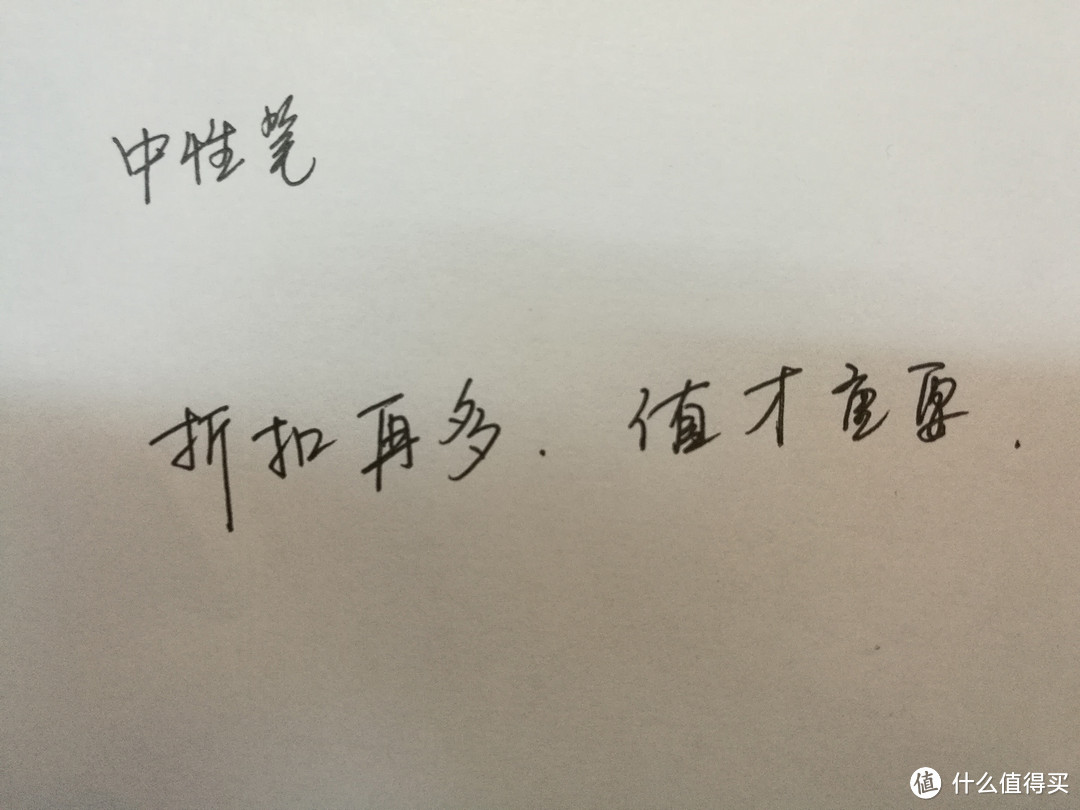 中性笔
折扣再多.值才重要.
值 什么值得买